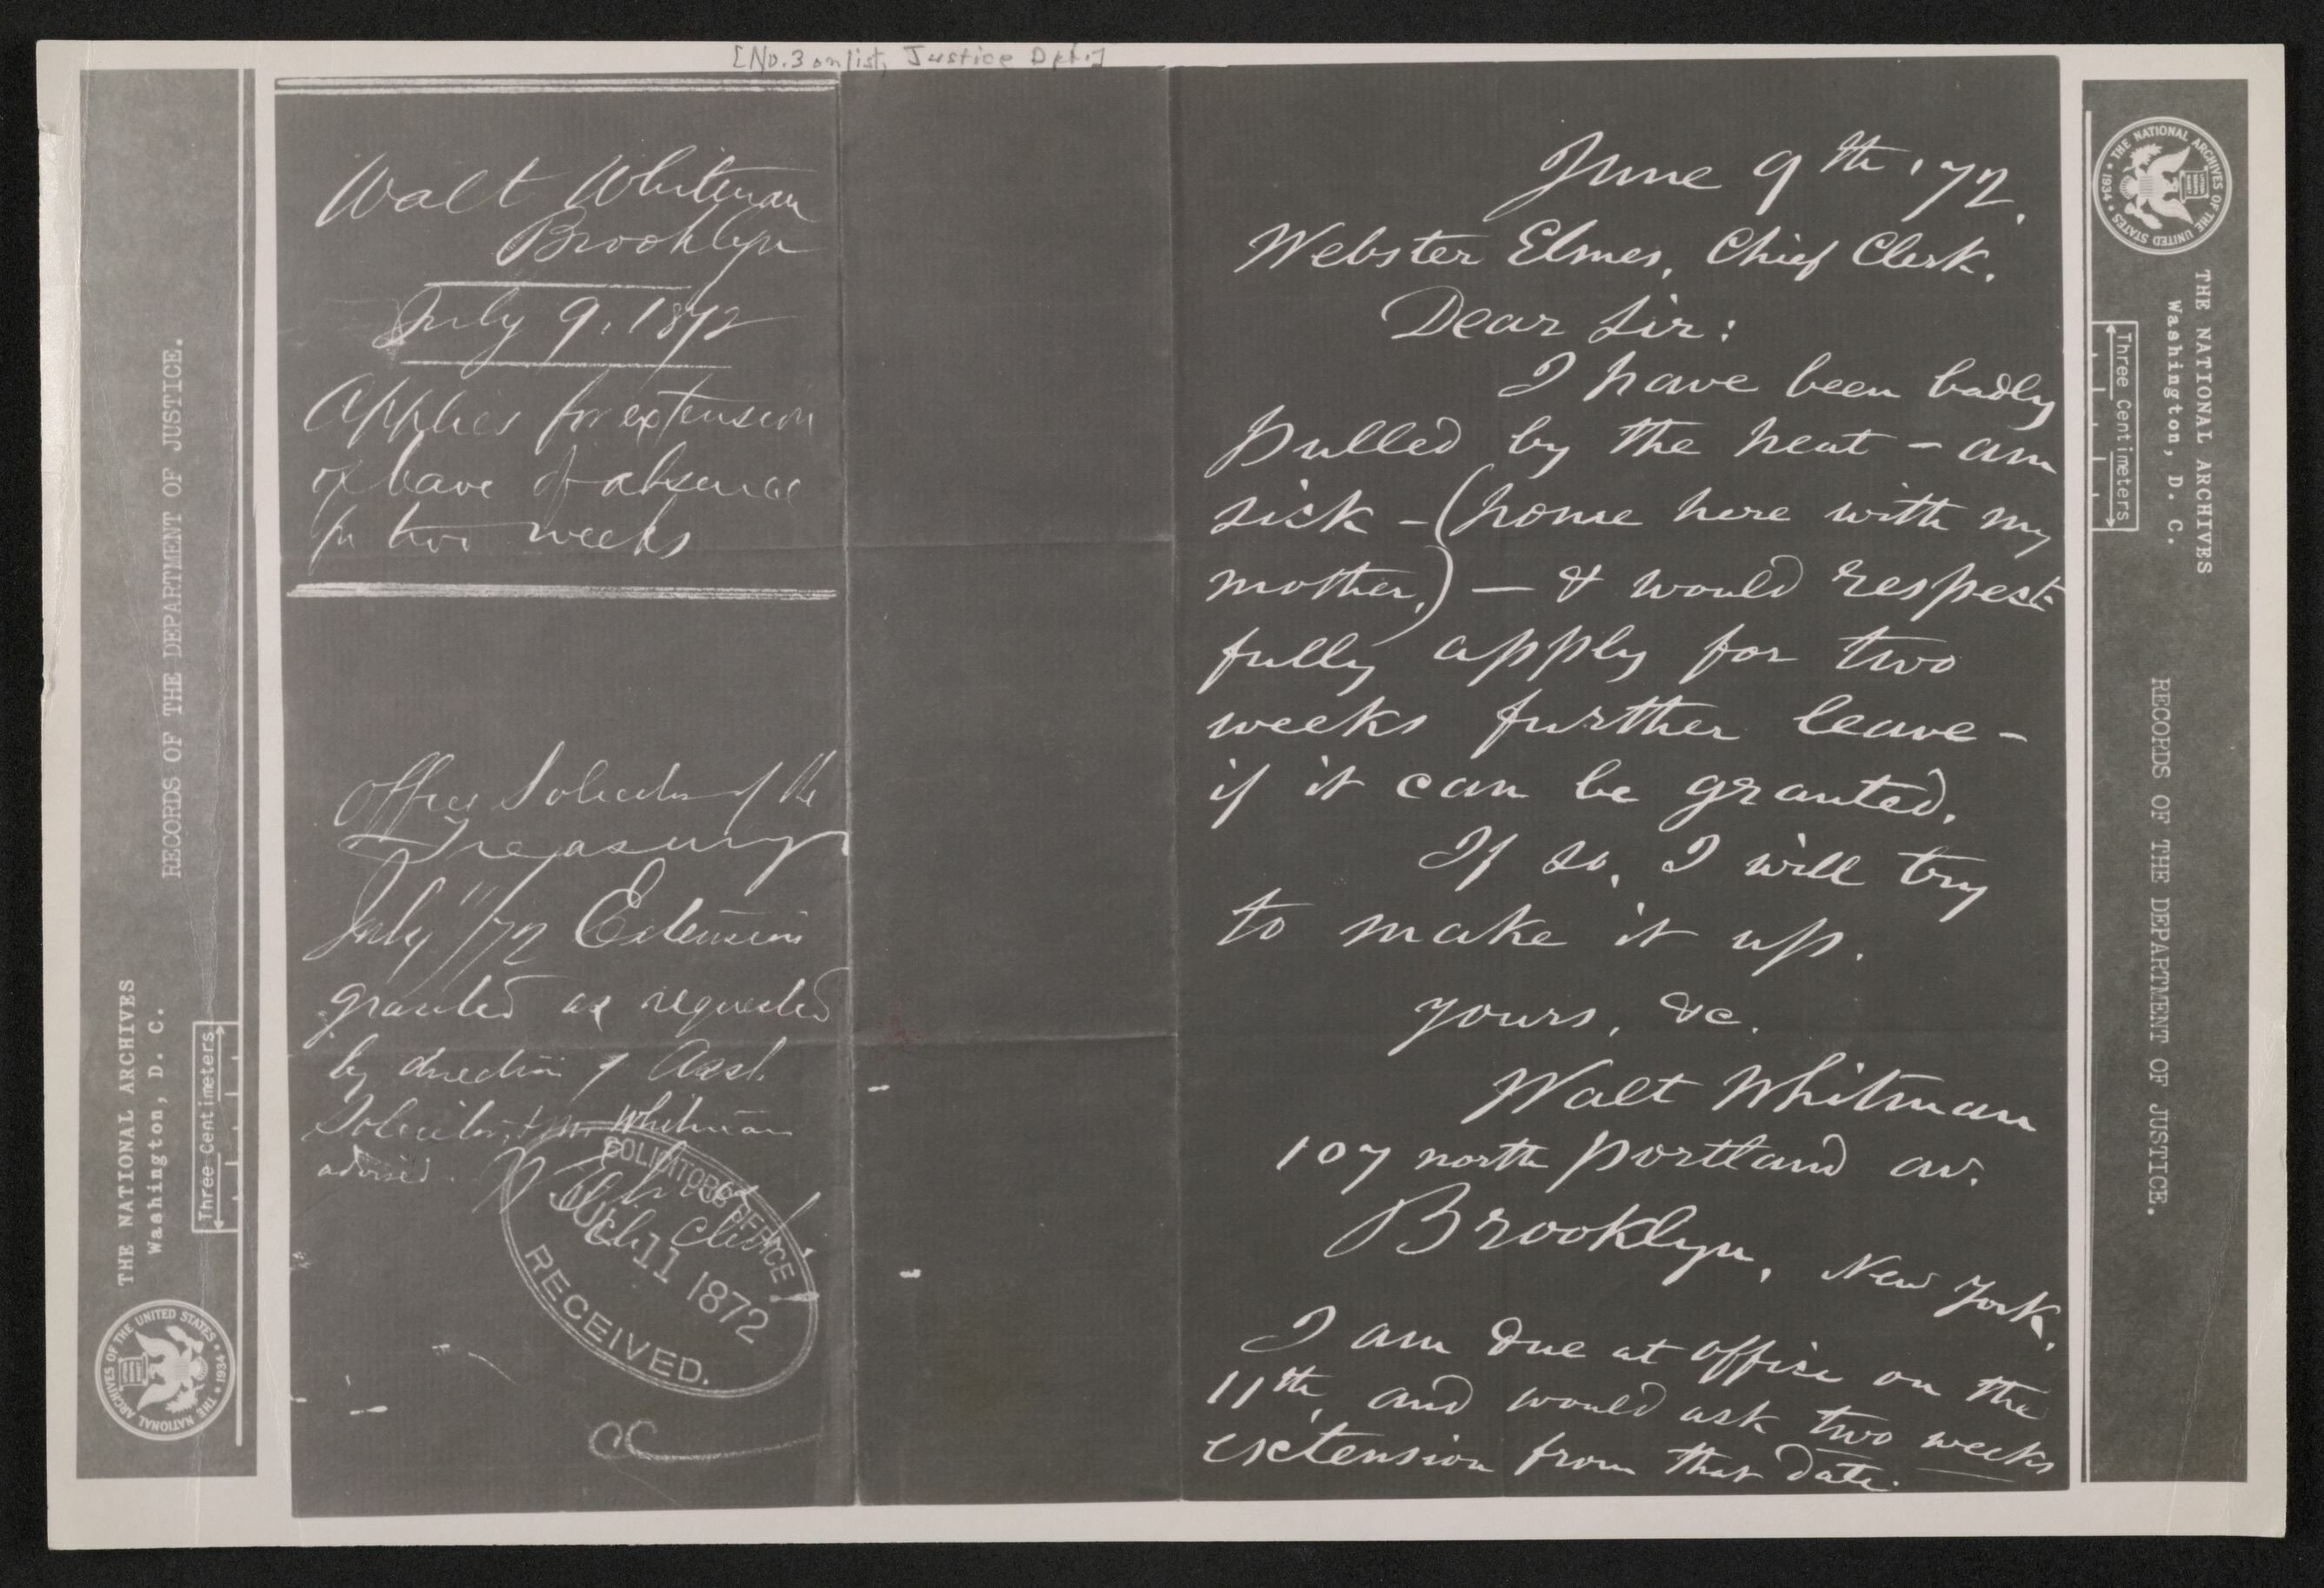 [No. 3 on list, Justice Dpt.]
THE NATIONAL ARCHIVES
Washington, D. C.
RECORDS OF THE DEPARTMENT OF JUSTICE.
Three Centimeters
THE NATIONAL ARCHIVES OF THE UNITED STATES
1934
Walt Whitman
Brooklyn
July 9, 1872
Applies for extension
of leave of absence
for two weeks
Office Solicitor of the
Treasury
July 11/72 Extension
granted as requested
by direction of Asst.
Solicitor, & Mr. Whitman
advised.
Ch. Clerk
SOLICITORS OFFICE
JUL 11 1872
RECEIVED.
June 9th '72.
Webster Elmes, Chief Clerk.
Dear Sir:
I have been badly
pulled by the heat – am
sick – (home here with my
mother,) – & would respect-
fully apply for two
weeks further leave –
if it can be granted.
If so, I will try
to make it up.
yours, &c.
Walt Whitman
107 north Portland av.
Brooklyn, New York.
I am due at office on the
11th, and would ask two weeks
extension from that date.
THE NATIONAL ARCHIVES OF THE UNITED STATES
1934
THE NATIONAL ARCHIVES
Washington, D. C.
Three Centimeters
RECORDS OF THE DEPARTMENT OF JUSTICE.